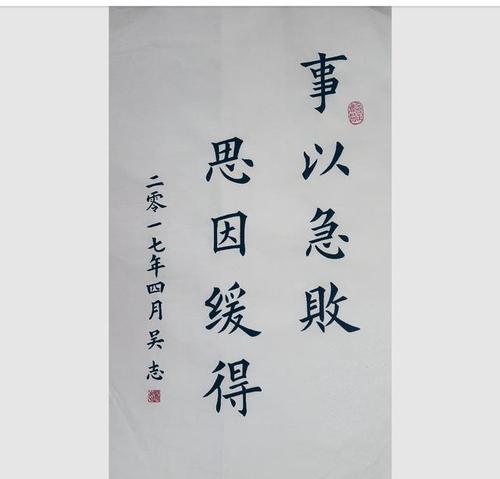 事以急敗
思因缓得
二零一七年四月吴志